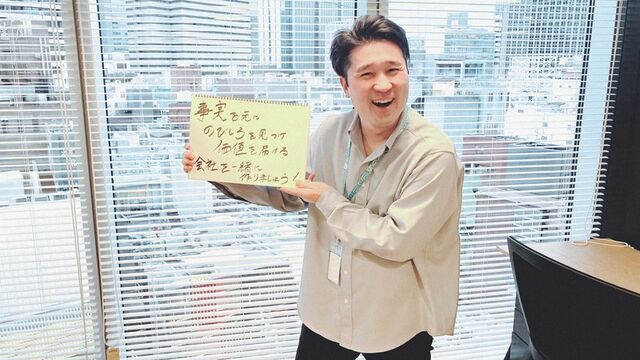 事実を元に
のびしろを見つけ
価値を届ける
会社を一緒に
作りましょう!